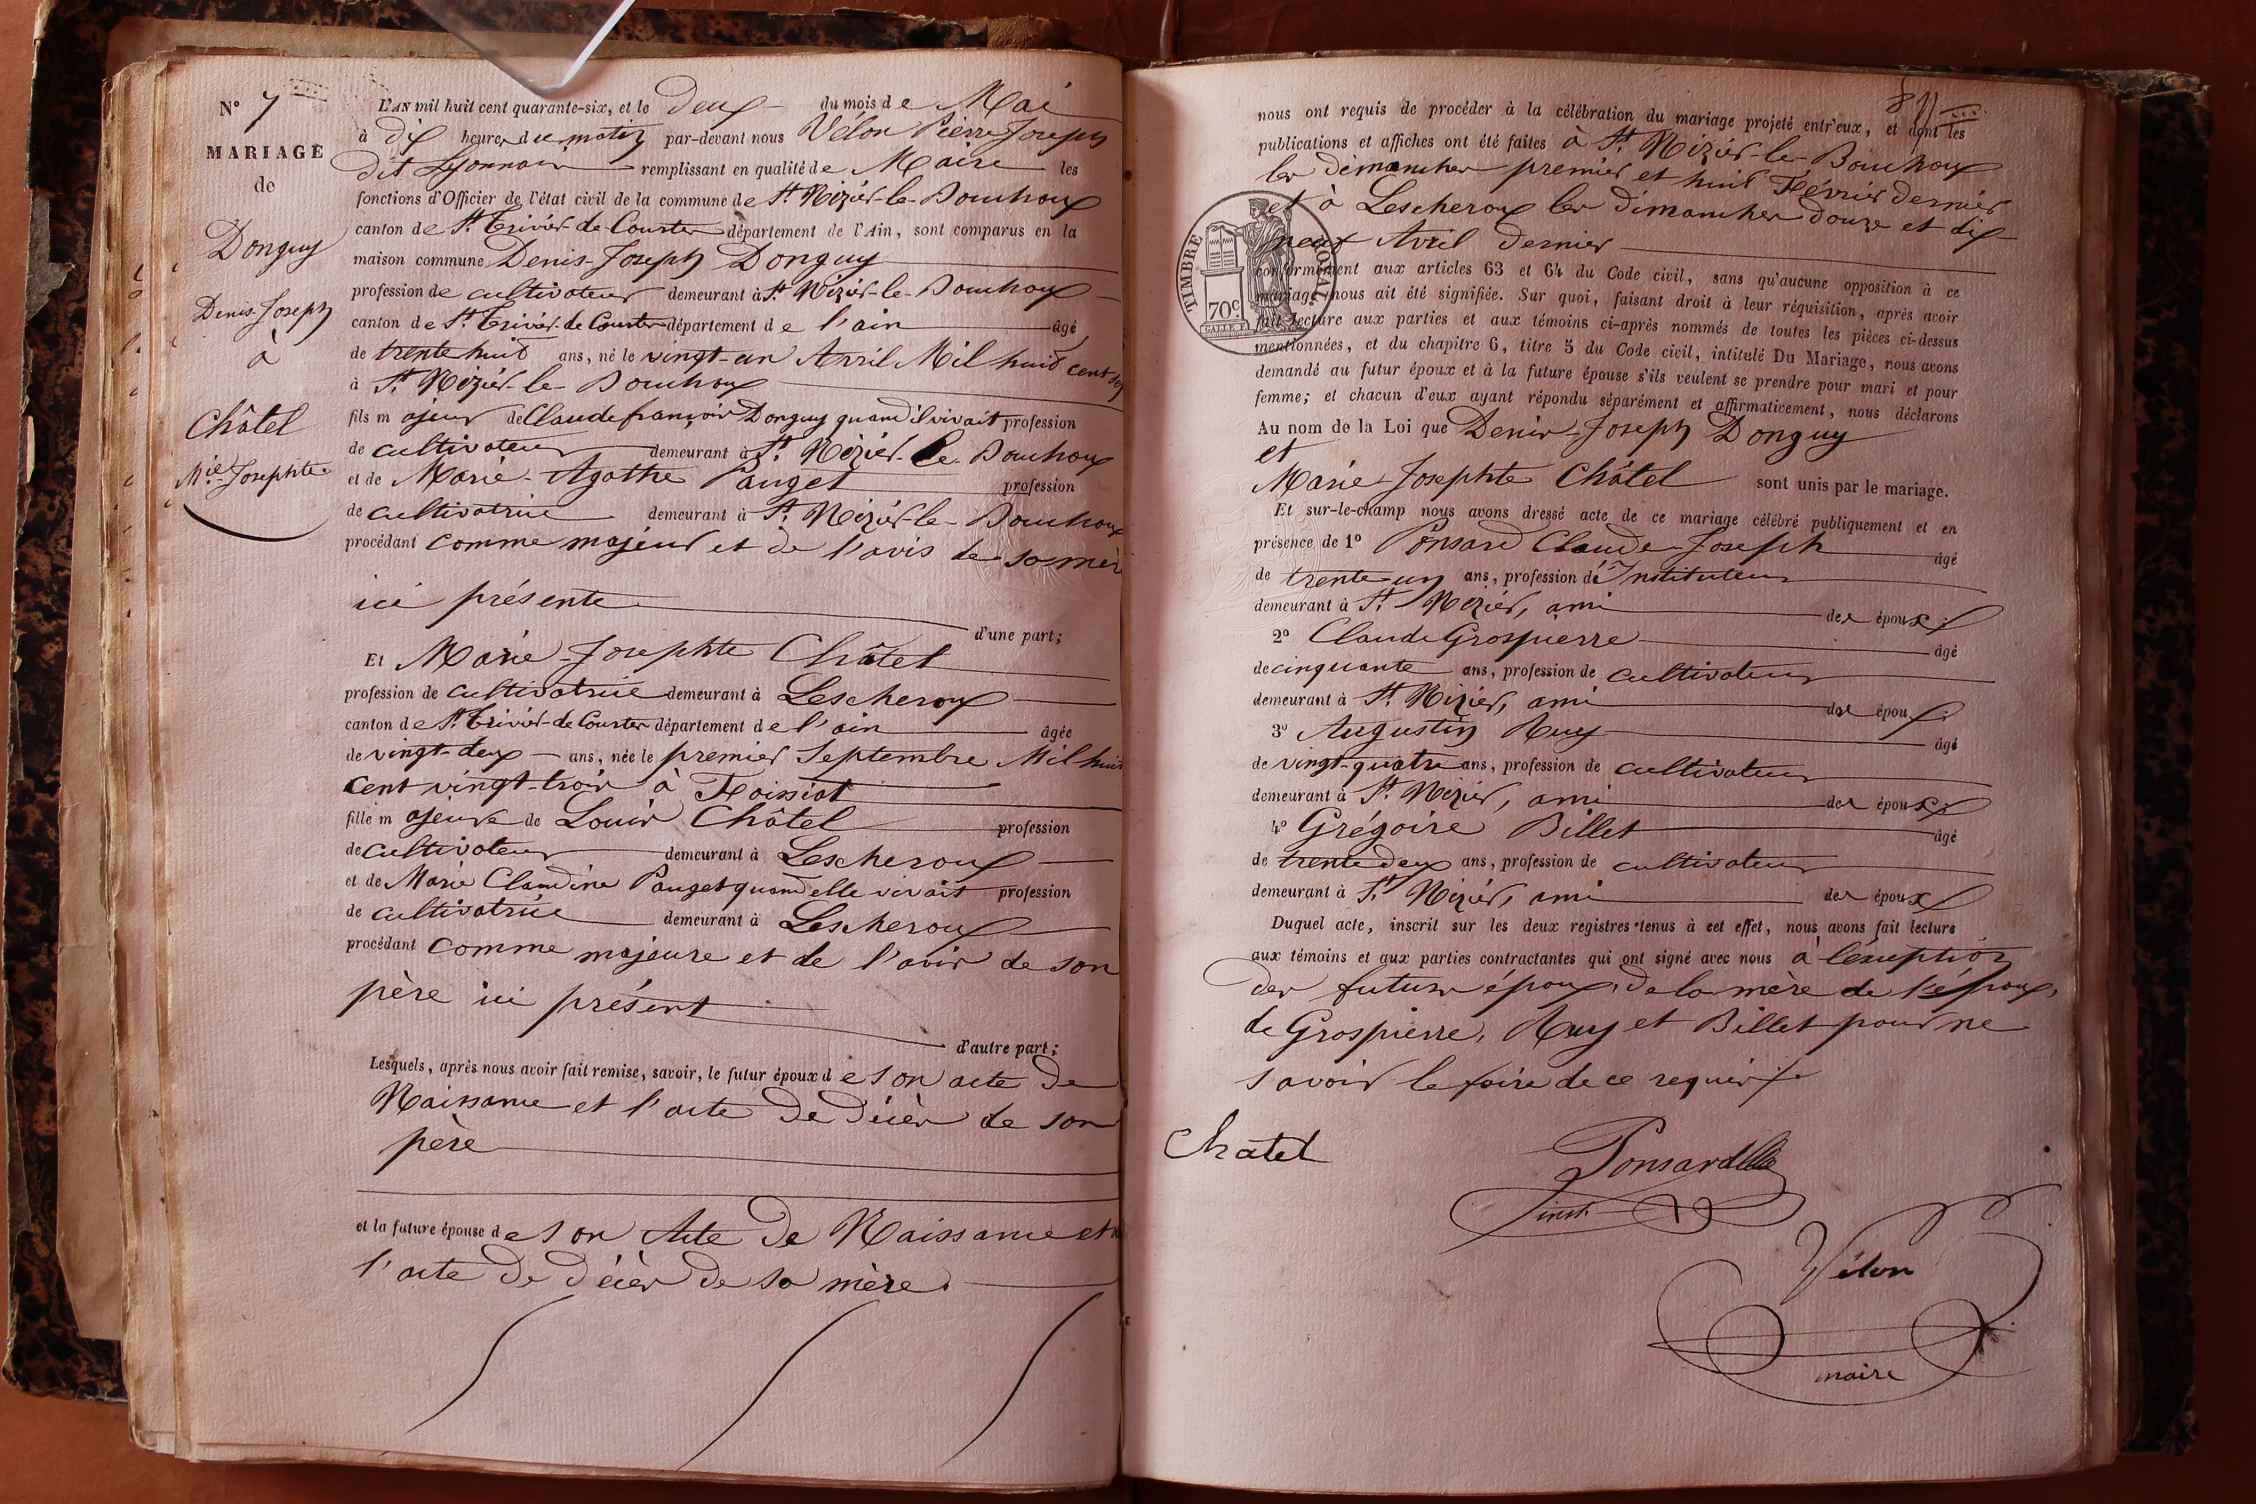 N° 7
MARIAGE
de
Donguy
Denis-Joseph
à
Châtel
Mie Josephte
L'AN mil huit cent quarante-six, et le deux du mois de Mai
à dix heures du matin par-devant nous Vélon Pierre Joseph
dit Lyonnais remplissant en qualité de Maire les
fonctions d'Officier de l'état civil de la commune de St Nizier-le-Bouchoux
canton de St Trivier-de-Courtes département de l'Ain, sont comparus en la
maison commune Denis-Joseph Donguy
profession de cultivateur demeurant à St Nizier-le-Bouchoux
canton de St Trivier-de-Courtes département de l'ain âgé
de trente huit ans, né le vingt-un Avril Mil huit cent
à St Nizier-le-Bouchoux
fils majeur de Claude françois Donguy quand il vivait profession
de cultivateur demeurant à St Nizier-le-Bouchoux
et de Marie-Agathe Pauget profession
de cultivatrice demeurant à St Nizier-le-Bouchoux
procédant comme majeur et de l'avis de sa mère
ici présente
d'une part;
Et Marie-Josephte Châtel
profession de cultivatrice demeurant à Lescheroux
canton de St Trivier-de-Courtes département de l'ain âgée
de vingt-deux ans, née le premier Septembre Mil huit
cent vingt-trois à Foissiat
fille majeure de Louis Châtel profession
de cultivateur demeurant à Lescheroux
et de Marie Claudine Pauget quand elle vivait profession
de cultivatrice demeurant à Lescheroux
procédant comme majeure et de l'avis de son
père ici présent
d'autre part;
Lesquels, après nous avoir fait remise, savoir, le futur époux de son acte de
Naissance et l'acte de décès de son
père
et la future épouse de son Acte de Naissance et
l'acte de décès de sa mère.
nous ont requis de procéder à la célébration du mariage projeté entr'eux, et dont les
publications et affiches ont été faites à St Nizier-le-Bouchoux
les dimanches premier et huit Février dernier
et à Lescheroux les dimanches douze et dix
neuf Avril dernier
TIMBRE ROYAL
70c
conformément aux articles 63 et 64 du Code civil, sans qu'aucune opposition à ce
mariage nous ait été signifiée. Sur quoi, faisant droit à leur réquisition, après avoir
fait lecture aux parties et aux témoins ci-après nommés de toutes les pièces ci-dessus
mentionnées, et du chapitre 6, titre 5 du Code civil, intitulé Du Mariage, nous avons
demandé au futur époux et à la future épouse s'ils veulent se prendre pour mari et pour
femme; et chacun d'eux ayant répondu séparément et affirmativement, nous déclarons
Au nom de la Loi que Denis-Joseph Donguy
et
Marie-Josephte Châtel sont unis par le mariage.
Et sur-le-champ nous avons dressé acte de ce mariage célébré publiquement et en
présence de 1° Ponsard Claude-Joseph âgé
de trente-un ans, profession d'Instituteur
demeurant à St Nizier, ami des époux
2° Claude Grospierre âgé
de cinquante ans, profession de cultivateur
demeurant à St Nizier, ami des époux
3° Augustin Ruy âgé
de vingt-quatre ans, profession de cultivateur
demeurant à St Nizier, ami des époux
4° Grégoire Billet âgé
de trente deux ans, profession de cultivateur
demeurant à St Nizier, ami des époux
Duquel acte, inscrit sur les deux registres tenus à cet effet, nous avons fait lecture
aux témoins et aux parties contractantes qui ont signé avec nous à l'éxeption
des futurs époux, de la mère de l'époux,
de Grospierre, Ruy et Billet pour ne
savoir le faire de ce requis
Chatel
Ponsard
inst.
Vélon
maire